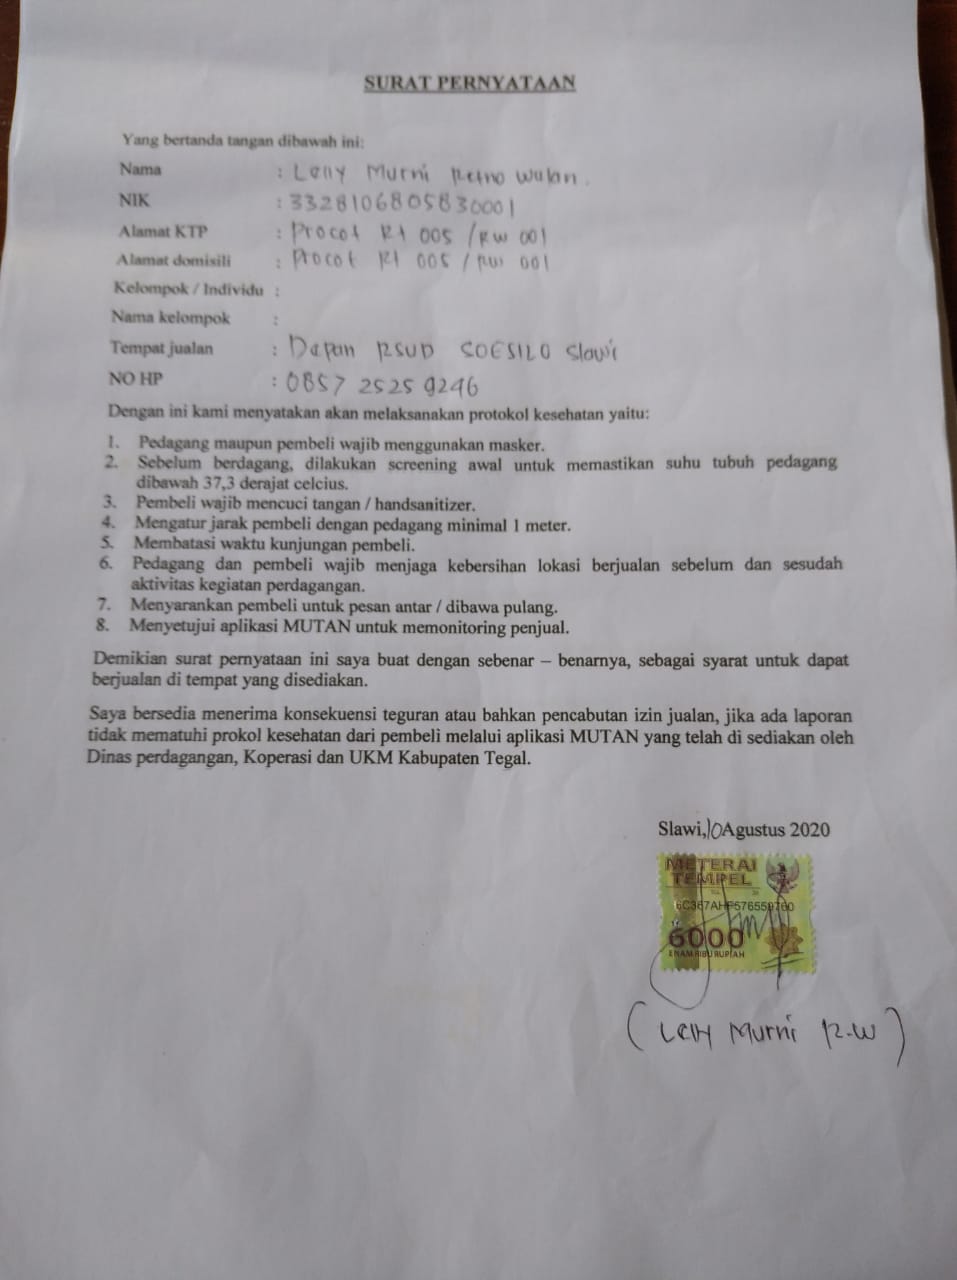 SURAT PERNYATAAN
Yang bertanda tangan dibawah ini:
Nama : Lely Murni Retno Wulan.
NIK : 3328106805830001
Alamat KTP : Procot Rt 005 / RW 001
Alamat domisili : Procot Rt 005 / RW 001
Kelompok / Individu :
Nama kelompok :
Tempat jualan : Depan RSUD SOESILO Slawi
NO HP : 0857 2525 9246
Dengan ini kami menyatakan akan melaksanakan protokol kesehatan yaitu:
1. Pedagang maupun pembeli wajib menggunakan masker.
2. Sebelum berdagang, dilakukan screening awal untuk memastikan suhu tubuh pedagang
dibawah 37,3 derajat celcius.
3. Pembeli wajib mencuci tangan / handsanitizer.
4. Mengatur jarak pembeli dengan pedagang minimal 1 meter.
5. Membatasi waktu kunjungan pembeli.
6. Pedagang dan pembeli wajib menjaga kebersihan lokasi berjualan sebelum dan sesudah
aktivitas kegiatan perdagangan.
7. Menyarankan pembeli untuk pesan antar / dibawa pulang.
8. Menyetujui aplikasi MUTAN untuk memonitoring penjual.
Demikian surat pernyataan ini saya buat dengan sebenar – benarnya, sebagai syarat untuk dapat
berjualan di tempat yang disediakan.
Saya bersedia menerima konsekuensi teguran atau bahkan pencabutan izin jualan, jika ada laporan
tidak mematuhi prokol kesehatan dari pembeli melalui aplikasi MUTAN yang telah di sediakan oleh
Dinas perdagangan, Koperasi dan UKM Kabupaten Tegal.
Slawi, 10 Agustus 2020
METERAI
TEMPEL
6000
ENAM RIBU RUPIAH
(Lely Murni R.W)